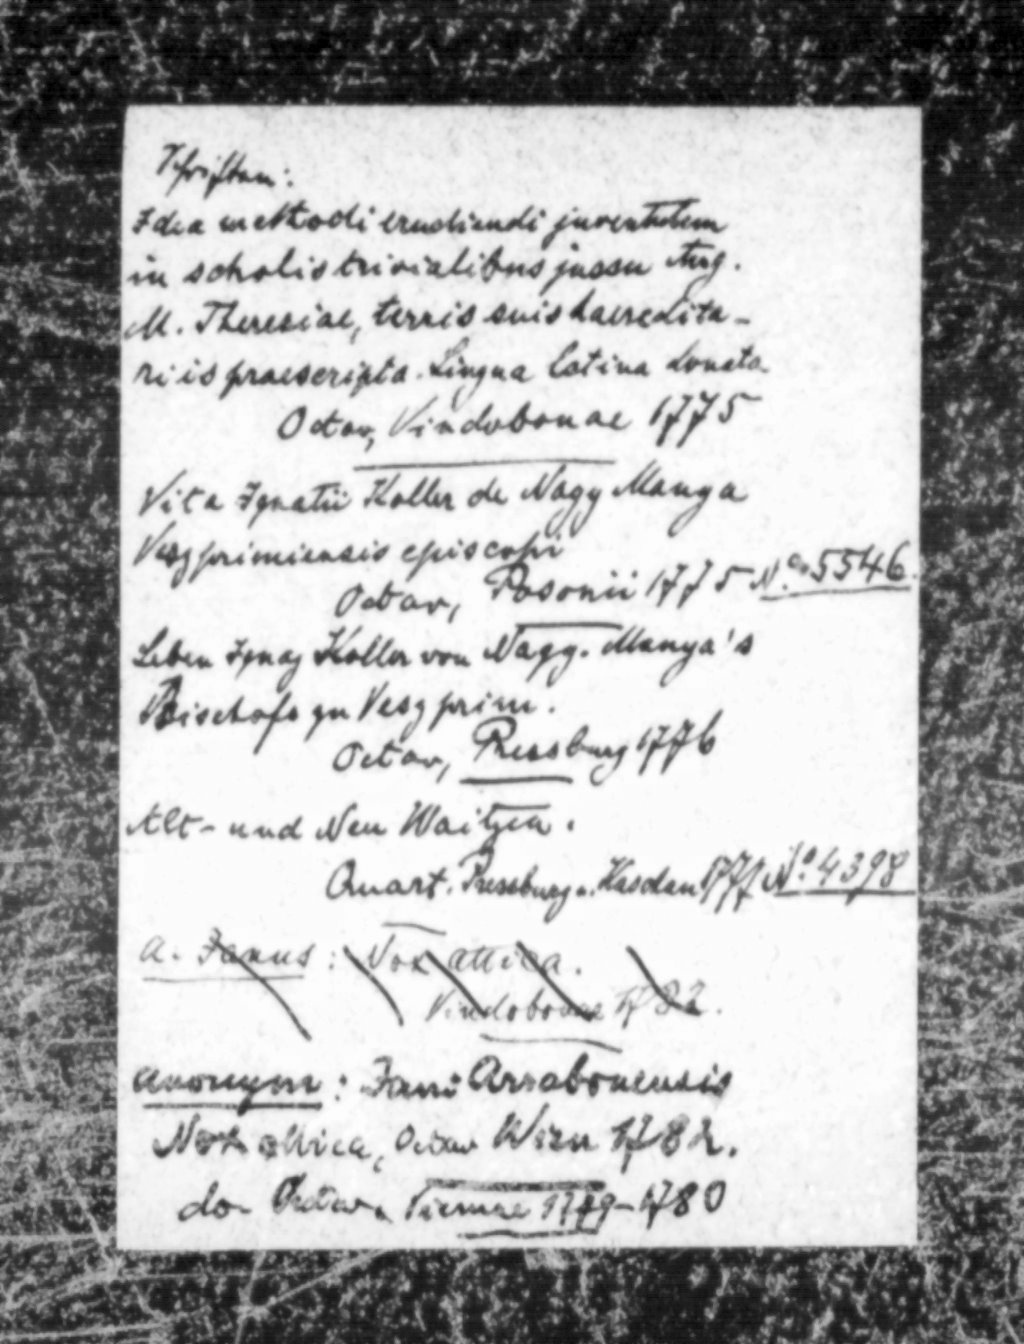 Schriften:
Idea methodi erudiendi juventutem
in scholis trivialibus jussu Aug.
M. Theresiae, terris suis haeredita-
riis praescripta. Lingua latina donata
Octav, Vindobonae 1775
Vita Ignatii Koller de Nagy Manya
Veszprimiensis episcopi
Octav, Posonii 1775 No 5546.
Leben Ignaz Koller von Nagy-Manya's
Bischofs zu Veszprim.
Octav, Pressburg 1776
Alt- und Neu Waitzen.
Quart. Pressburg u. Kaschau 1777 No 4398
a. Janus: Nox attica.
Vindobonae 1782.
anonym: Jani Arrabonensis
Nox attica, Octav Wien 1782.
do Octav. Viennae 1779-1780